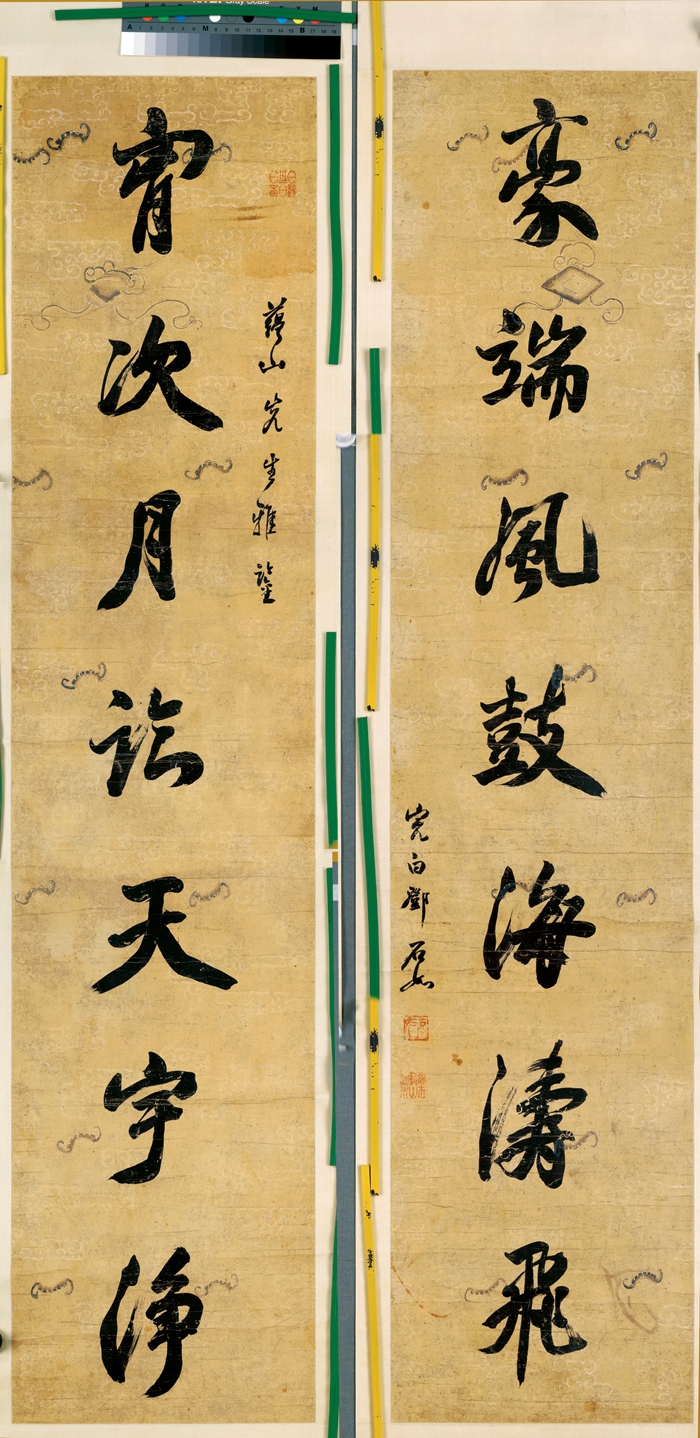 Gray Scale
蘊山先生雅鑒
胷次月臨天宇淨
豪端風鼓海濤飛
完白鄧石如